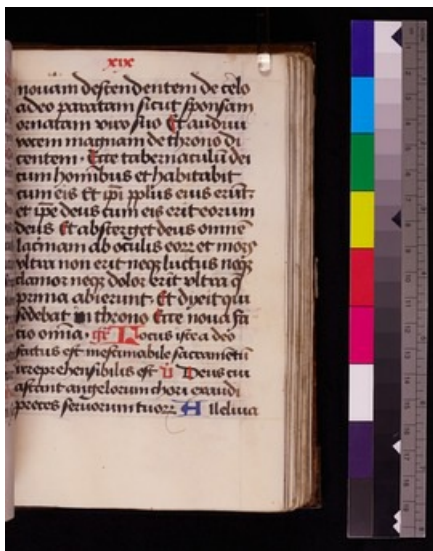 xix
nouam descendentem de celo
a deo paratam sicut sponsam
ornatam viro suo Et audiui
vocem magnam de throno di
centem. Ecce tabernaculū dei
cum hominibus et habitabit
cum eis Et ip̄i pplus eius erūt.
et ip̄e deus cum eis erit eorum
deus Et absterget deus omnē
lacrimam ab oculis eorꝝ et mors
vltra non erit neqꝫ luctus neqꝫ
clamor neqꝫ dolor erit vltra q̄
prima abierunt. Et dixit qui
sedebat in throno Ecce noua fa
cio omnia. gr̄ Locus iste a deo
factus est inestimabile sacramētū
irreprehensibilis est v̄ Deus cui
astant angelorum chori exaudi
preces seruorum tuorꝝ Alleluia